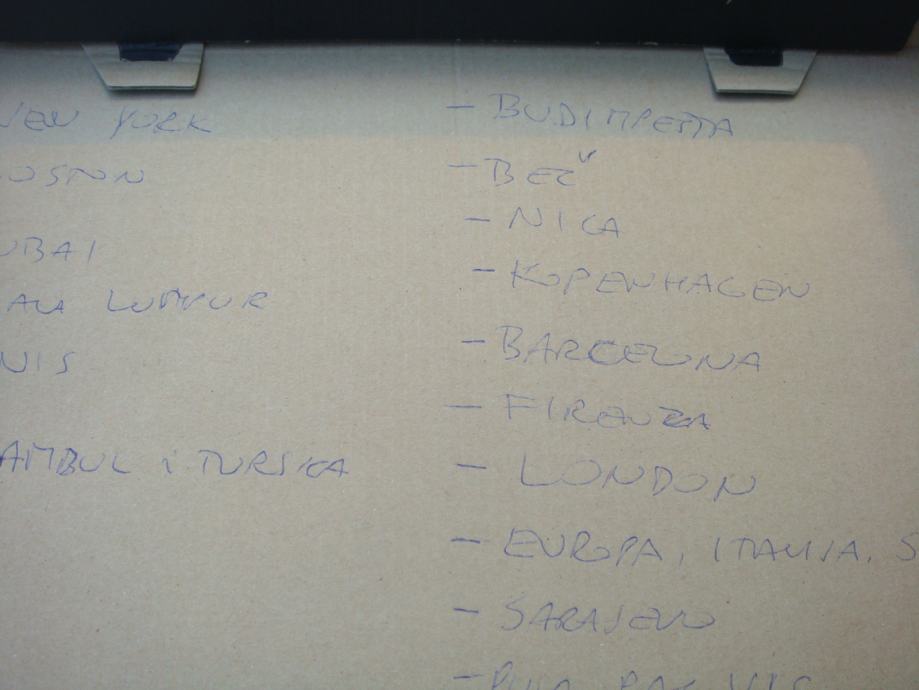 NEW YORK
OSTON
UBAI
LUMPUR
AMBUL i TURSKA
- BUDIMPESTA
- BEČ
- NICA
- KOPENHAGEN
- BARCELONA
- FIRENZA
- LONDON
- EUROPA, ITALIJA, S
- SARAJEVO